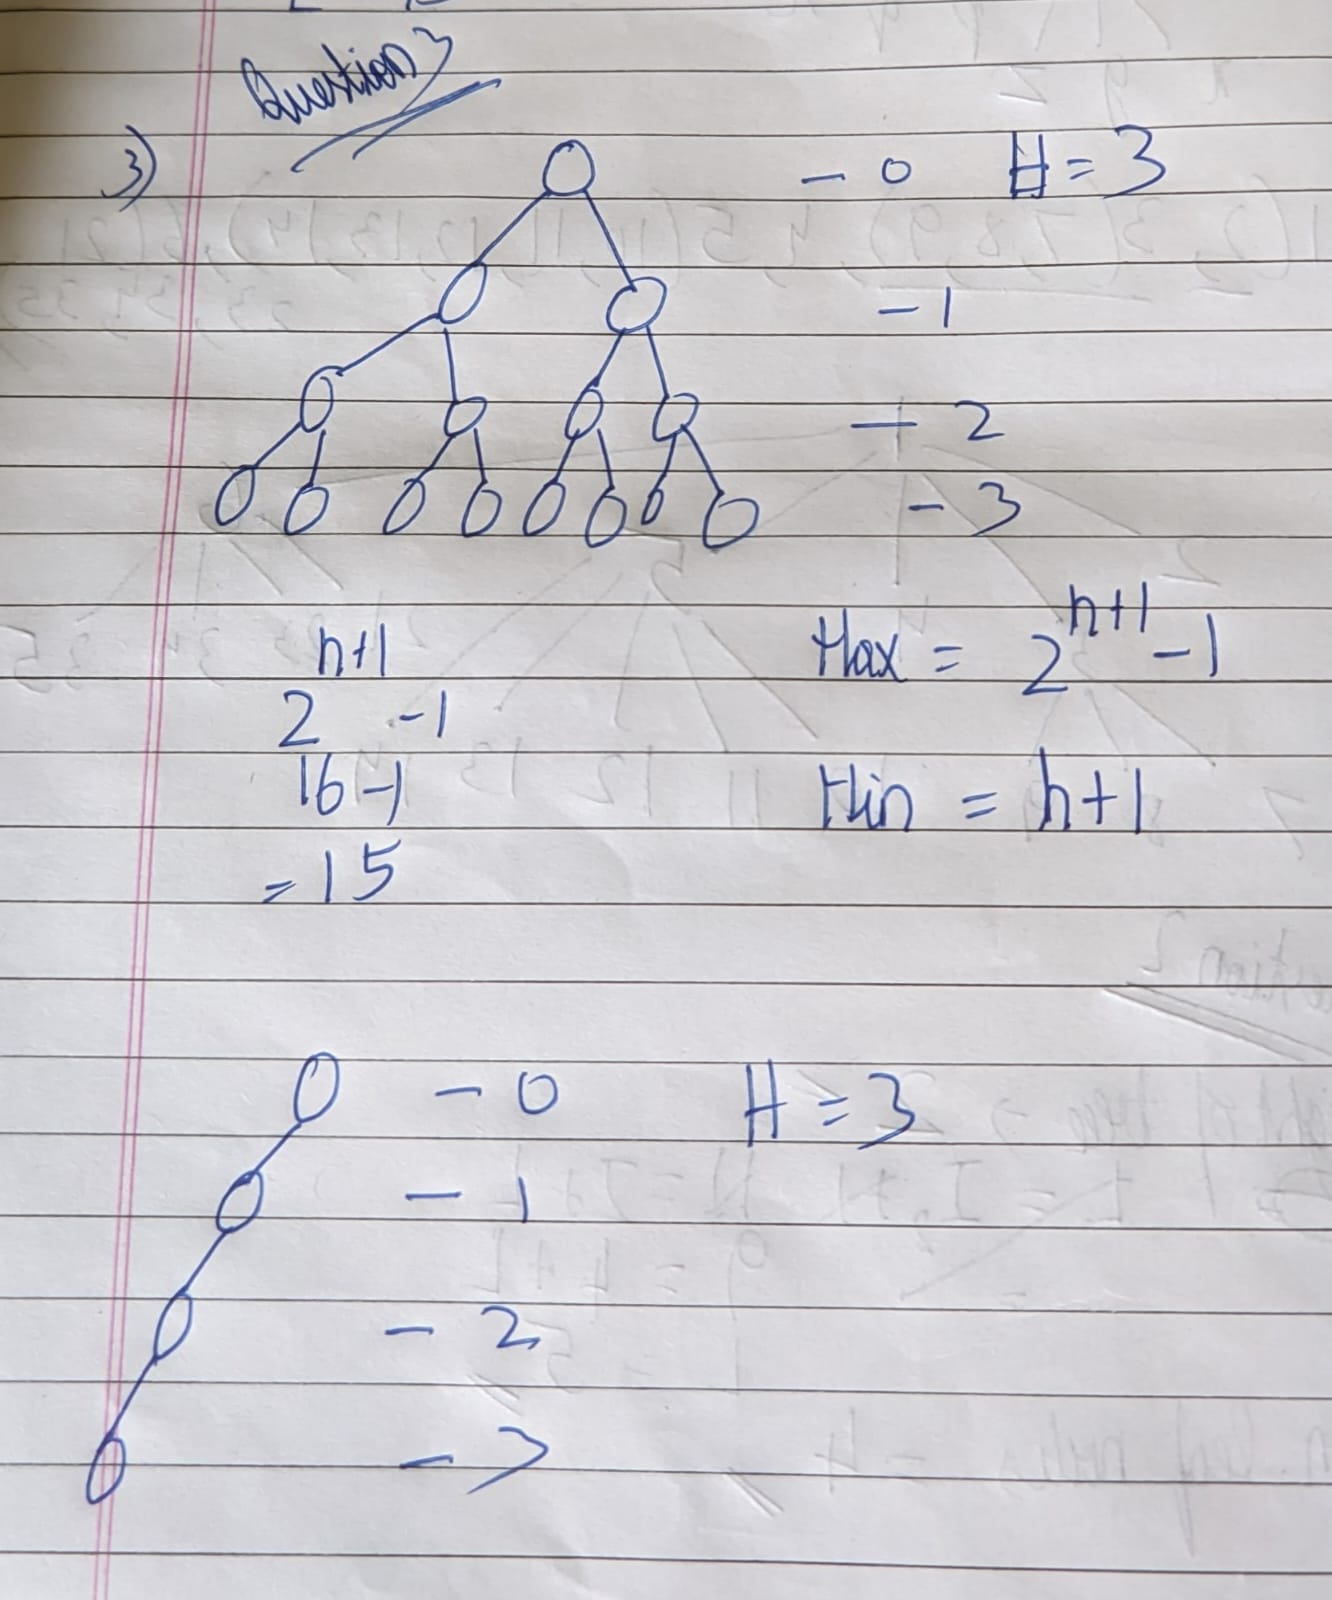 Question 3
3)
- 0 H = 3
- 1
- 2
- 3
h+1
2 -1
16-1
= 15
Max = 2^{h+1} - 1
Min = h+1
- 0 H = 3
- 1
- 2
- 3